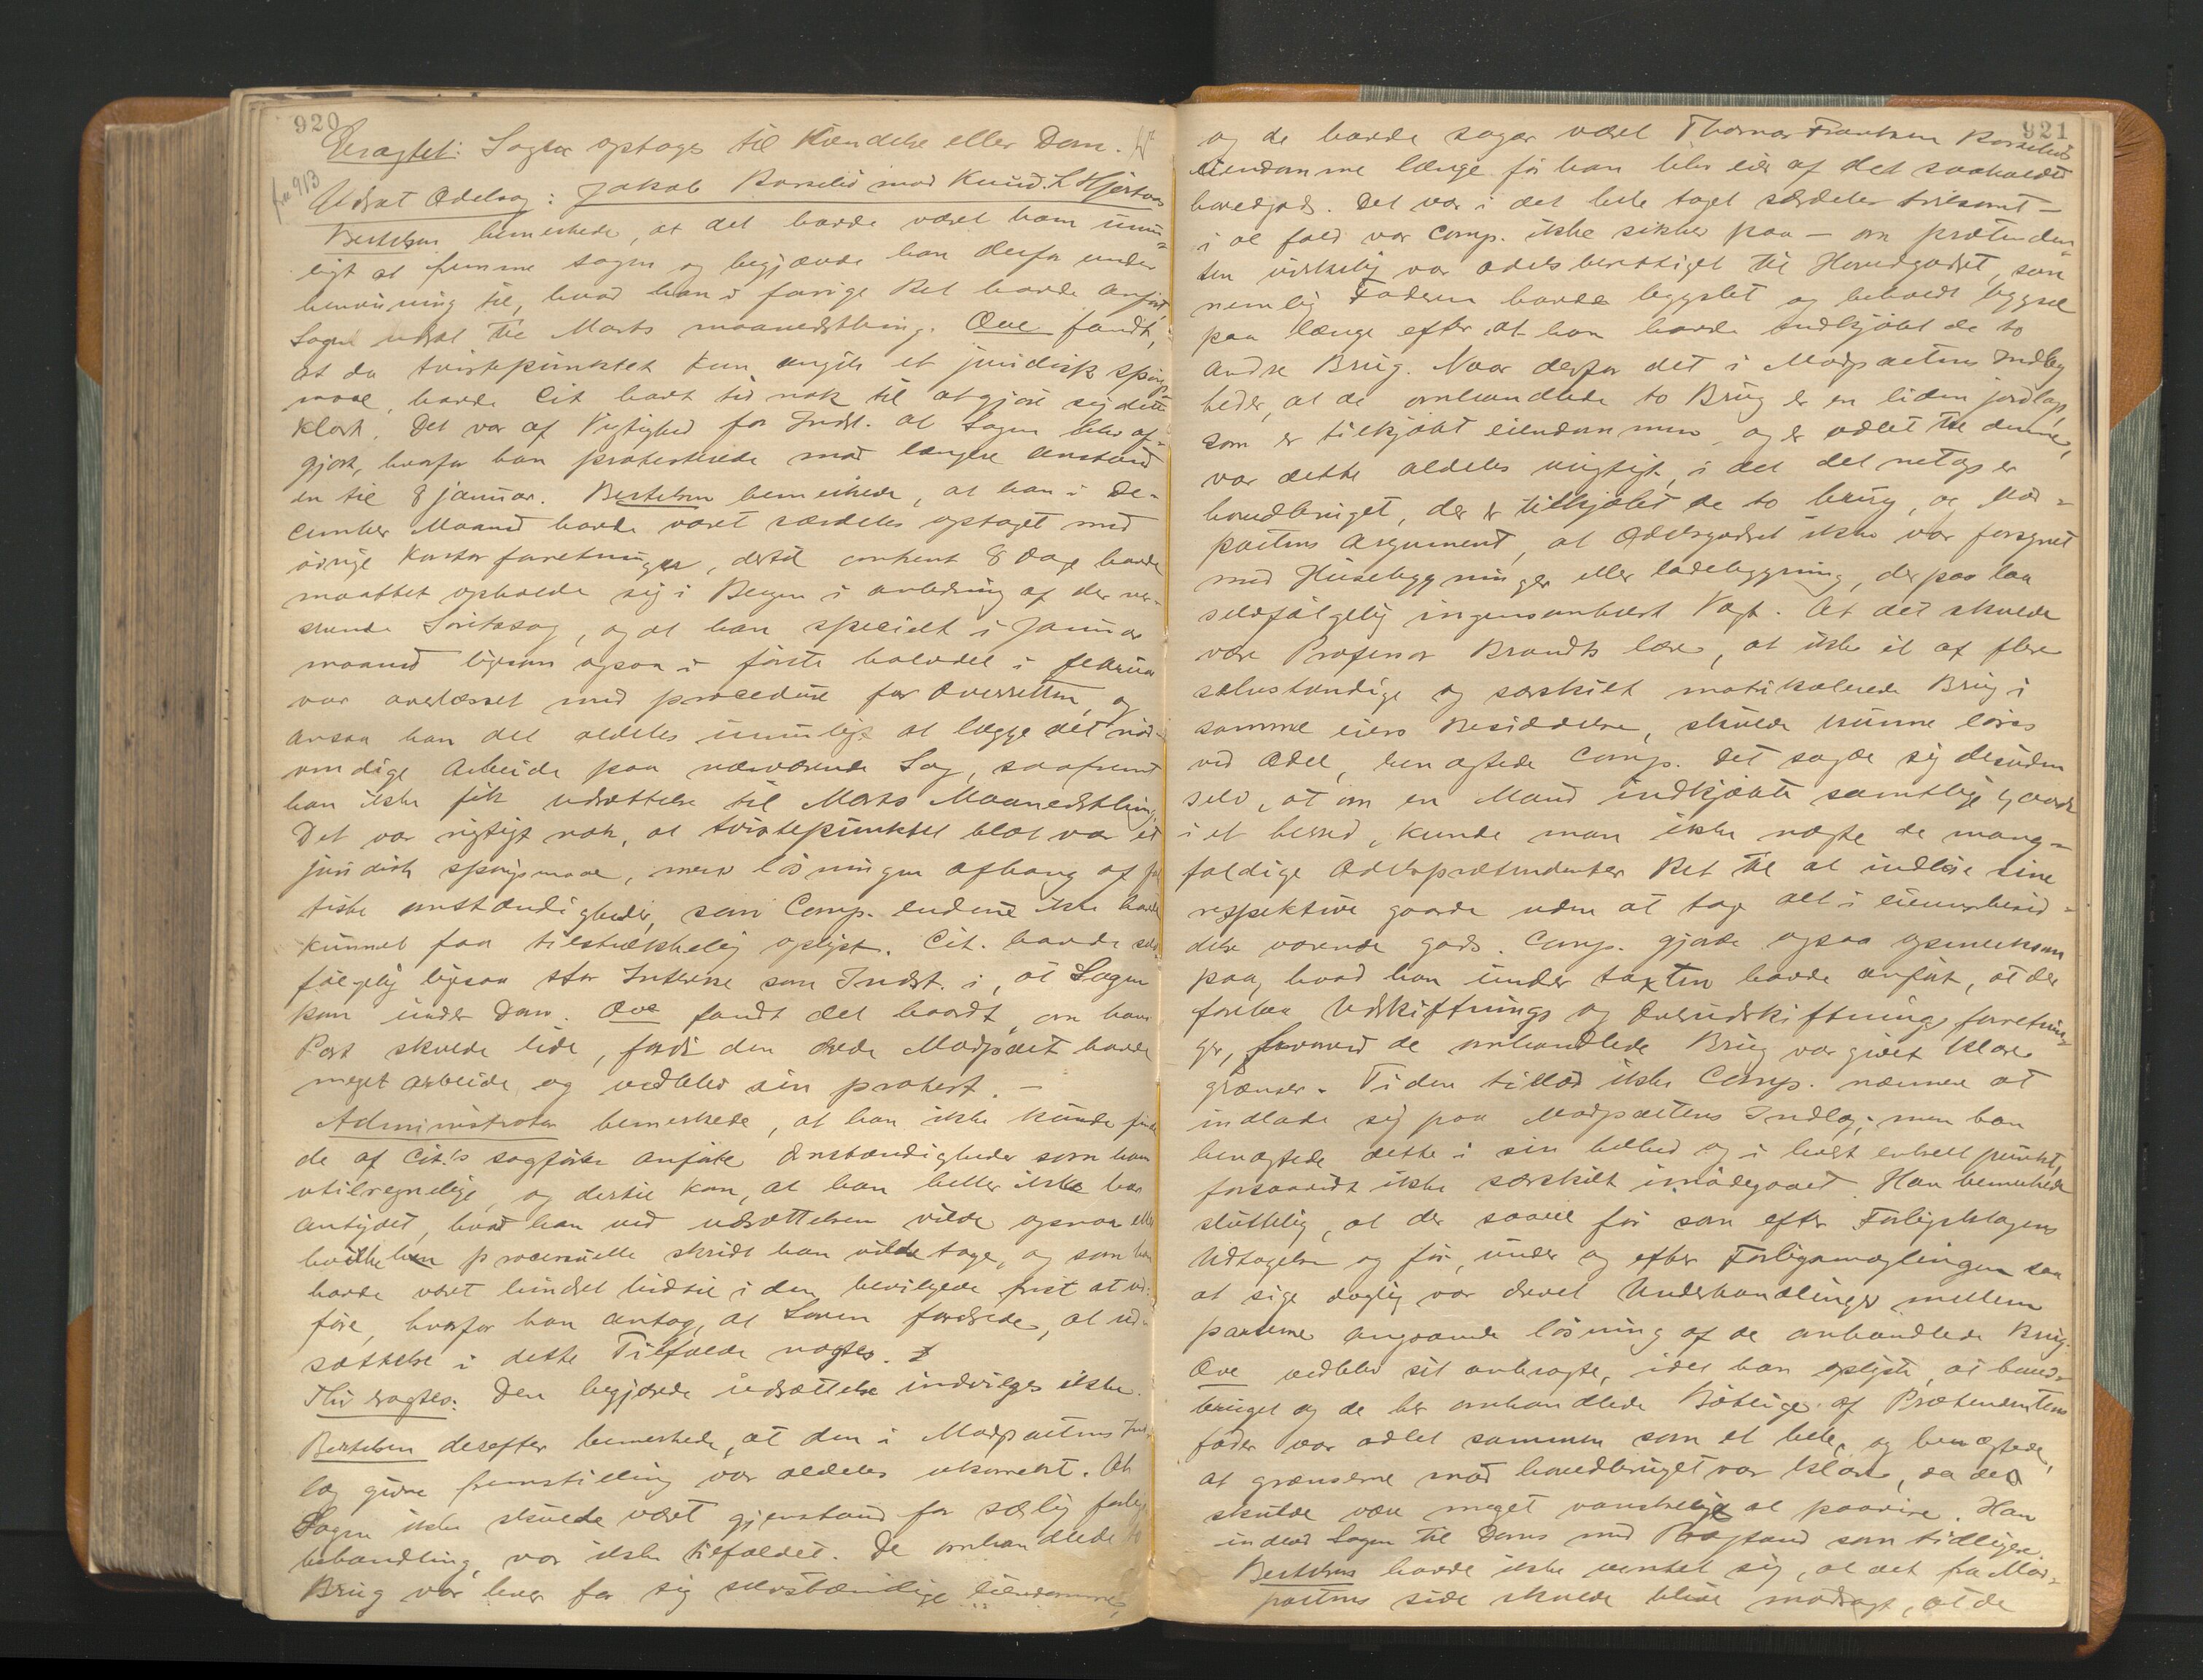 920
Eragtet: Sagen optages til Kjendelse eller Dom.
fra 913
Udsat Odelssag: Jakob Korselid mod Knud L Hjørtaas
Bertelsen bemerkede, at det havde været ham umu-
ligt at fremme sagen og begjærede han derfor under
henvisning til, hvad han i forrige Ret havde anført,
Sagen udsat til Marts maanedsthing. Ove fandt,
at da tvistepunktet kun angik et juridisk spørgs-
maal, havde Cit havt tid nok til at gjøre sig dette
klart. Det var af Vigtighed for Indst. at Sagen blev af-
gjort, hvorfor han protesterede mod længere anstand
en til 8 januar. Bertelsen bemerkede, at han i De-
cember Maaned havde været særdeles optaget med
øvrige Kontorforretninger, dertil omtrent 8 dage havde
maattet opholde sig i Bergen i anledning af der ver-
serende Søritssag, og at han specielt i Januar
maaned ligesom ogsaa i første halvdel i februar
var overlæsset med procedure for Overretten, og
ansaa han det aldeles umuligt at lægge det nød-
vendige Arbeide paa nærværende Sag, saafremt
han ikke fik udsættelse til Marts Maanedsthing.
Det var rigtigt nok, at tvistepunktet blot var et
juridisk spørgsmaal, men løsningen afhang af fak-
tiske omstændigheder, som Comp. endnu ikke havde
kunnet faa tilstrækkelig oplyst. Cit. havde selv-
følgelig ligesaa stor Interesse som Indst. i, at Sagen
kom under Dom. Ove fandt det haardt, om hans
Part skulde lide, fordi den ærede Modpart havde
meget arbeide og vedblev sin protest. —
Administrator bemerkede, at han ikke kunde finde
de af Cit.'s sagfører anførte Omstændigheder som ham
utilregnelige, og dertil kom, at han heller ikke har
antydet, hvad han ved udsættelsen vilde opnaa eller
hvilke processuelle skridt han vilde tage, og som han
havde været hindret hidtil i den bevilgede frist at ud-
føre, hvorfor han antog, at Loven fordrede, at ud-
sættelse i dette Tilfælde nægtes.
Thi eragtes: Den begjærede udsættelse indvilges ikke.
Bertelsen derefter bemerkede, at den i Modpartens Ind-
læg givne fremstilling var aldeles ukorrekt. At
Sagen ikke skulde været gjenstand for særlig forligs-
behandling, var ikke tilfældet. De omhandlede to
Brug var hver for sig selvstændige eiendomme,
921
og de havde sogar været Thomas Frantsen Korselids
eiendomme længe før han blev eier af det saakaldte
hovedgods. Det var i det hele taget særdeles tvilsomt —
i al fald var Comp. ikke sikker paa — om prætenden-
ten virkelig var odelsberettiget til Hovedgodset, som
nemlig Faderen havde bygslet og beholdt bygsel
paa længe efter at han havde indkjøbt de to
andre Brug. Naar derfor det i Modpartens Indlæg
heder, at de omhandlede to Brug er en liden jordlap,
som er tilkjøbt eiendommen, og er odlet til denne,
var dette aldeles urigtigt, i det det netop er
hovedbruget, der er tilkjøbt de to brug, og Mod-
partens Argument, at Odelsgodset ikke var forsynet
med Husebygninger eller ladebygning, derpaa laa
selvfølgelig ingensomhelst Vægt. At det skulde
være Professor Brandts lære, at ikke et af flere
selvstændige og særskilt matrikulerede Brug i
samme eiers Besiddelse, skulde kunne løses
ved Odel, benægtede Comp. Det sagde sig desuden
selv, at om en Mand indkjøbte samtlige gaarde
i et herred, kunde man ikke nægte de mang-
foldige Odelsprætendenter Ret til at indløse sine
respektive gaarde uden at tage alt i eierens besid-
delse værende gods. Comp. gjorde ogsaa opmerksom
paa, hvad han under taxten havde anført, at der
forelaa Udskiftnings og Overudskiftningsforretnin-
ger, hvorved de omhandlede Brug var givet klare
grænser. Tiden tillod ikke Comp. nærmere at
indlade sig paa Modpartens Indlæg; men han
benægtede dette i sin helhed og i hvert enkelt punkt,
forsaavidt ikke særskilt imødegaaet. Han bemerkede
sluttelig, at der saavel før som efter Forligsklagens
Udtagelse og før, under og efter Forligsmæglingen saa
at sige daglig var drevet Underhandlinger mellem
parterne angaaende løsning af de omhandlede Brug.
Ove vedblev sit anbragte, idet han oplyste, at hoved-
bruget og de her omhandlede Bøbrug af Prætendentens
fader var odlet sammen som et hele, og benægtede,
at grænserne mod hovedbruget var klare, da det
skulde være meget vanskeligt at paavise. Han
indlod Sagen til Doms med Paastand som tidligere.
Bertelsen havde ikke ventet sig, at det fra Mod-
partens side skulde blive modsagt, at de